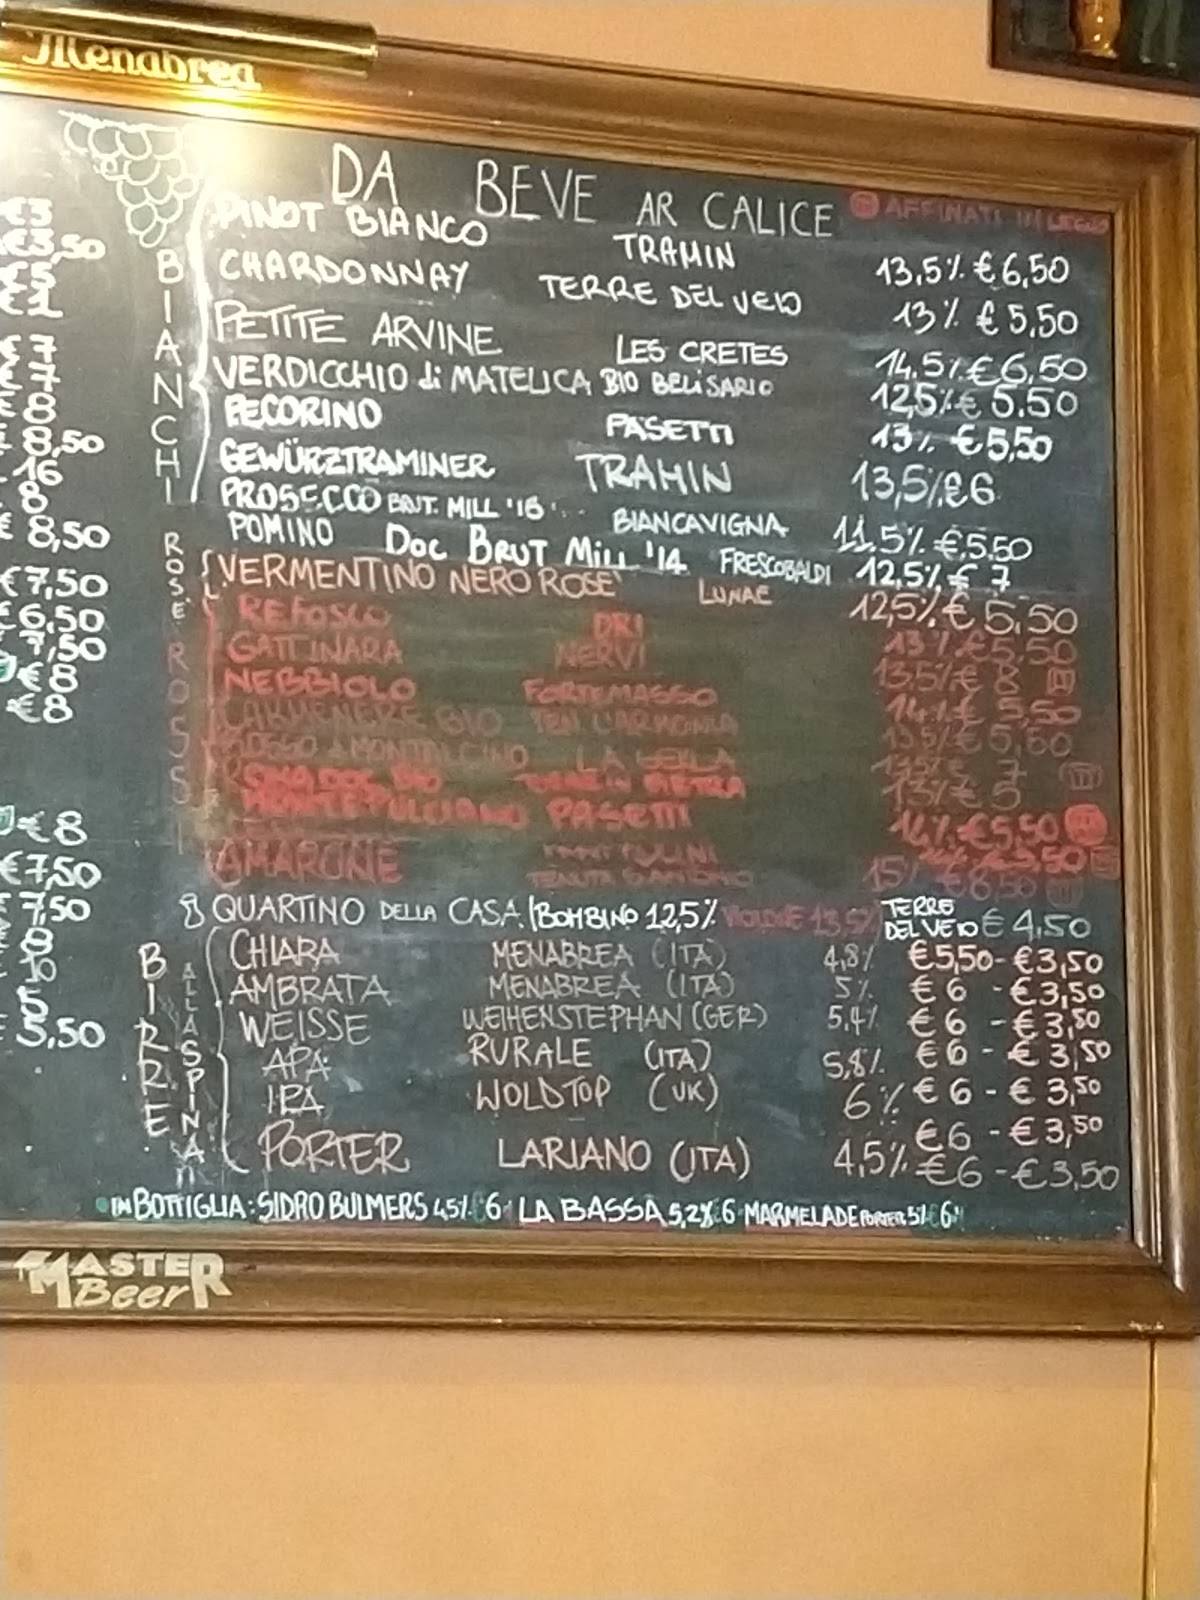 Menabrea
DA BEVE AR CALICE AFFINATI IN LEGNO
BIANCHI
PINOT BIANCO TRAMIN 13,5% €6,50
CHARDONNAY TERRE DEL VEIO 13% €5,50
PETITE ARVINE LES CRETES 14,5% €6,50
VERDICCHIO di MATELICA BIO BELISARIO 12,5% € 5.50
PECORINO PASETTI 13% €5,50
GEWÜRZTRAMINER TRAMIN 13,5% €6
PROSECCO BRUT. MILL '18 BIANCAVIGNA 11.5% €5.50
POMINO DOC BRUT MILL '14 FRESCOBALDI 12,5% € 7
ROSÈ
VERMENTINO NERO ROSE' LUNAE 12,5% € 5,50
ROSSI
REFOSCO DRI 13% €5,50
GATTINARA NERVI 13,5% € 8
NEBBIOLO FORTEMASSO 14% € 5,50
CARMENERE BIO TEN L'ARMONIA 13,5% € 5,50
ROSSO MONTALCINO LA 13,5% € 7
DOC BIO PIETRA 13% € 5
MONTEPULCIANO PASETTI 14% €5,50
AMARONE TENUTA 15% €8,50
QUARTINO DELLA CASA / BOMBINO 12,5% 13,5% TERRE DEL VEIO € 4,50
BIRRE ALLA SPINA
CHIARA MENABREA (ITA) 4,8% €5,50 - €3,50
AMBRATA MENABREA (ITA) 5% €6 - €3,50
WEISSE WEIHENSTEPHAN (GER) 5,4% €6 - €3,50
APA RURALE (ITA) 5,8% €6 - €3,50
IPA WOLDTOP (UK) 6% €6 - €3,50
€6 - €3,50
PORTER LARIANO (ITA) 4,5% €6 - €3,50
IN BOTTIGLIA: SIDRO BULMERS 4,5% €6 LA BASSA 5,2% €6 MARMELADE PORTER 5% €6
€3
€3,50
€5
€1
€7
€7
€8
€8,50
16
8
€8,50
€7,50
€6,50
7,50
€8
€8
€8
€7,50
7,50
8
10
5
5,50
MASTER Beer